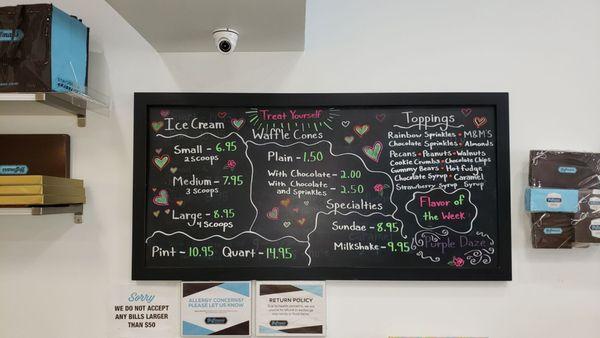 Treat Yourself
Ice Cream
Small - 6.95
2 SCOOPS
Medium - 7.95
3 SCOOPS
Large - 8.95
4 SCOOPS
Pint - 10.95 Quart - 14.95
Waffle Cones
Plain - 1.50
With Chocolate - 2.00
With Chocolate
and Sprinkles - 2.50
Specialties
Sundae - 8.95
Milkshake - 9.95
Toppings
Rainbow Sprinkles • M&M'S
Chocolate Sprinkles • Almonds
Pecans • Peanuts • Walnuts
Cookie Crumbs • Chocolate Chips
Gummy Bears • Hot Fudge
Chocolate Syrup • Caramel
Strawberry Syrup Syrup
Flavor of
the Week
Purple Daze
Sorry
WE DO NOT ACCEPT
ANY BILLS LARGER
THAN $50
ALLERGY CONCERNS?
PLEASE LET US KNOW
RETURN POLICY